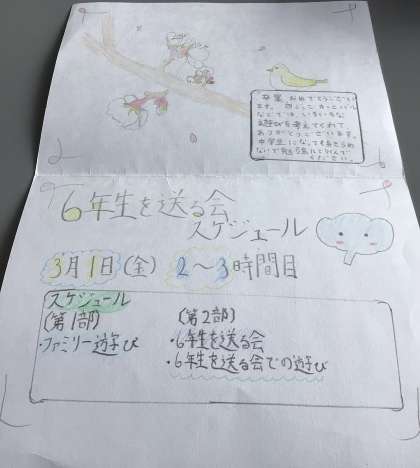 卒業おめでとうござい
ます。
遊びを考えてくれて
ありがとうございます。
中学生になってもあきらめ
ないで
ください。
6年生を送る会
スケジュール
3月1日(金) 2～3時間目
スケジュール
(第1部)
・ファミリー遊び
(第2部)
・6年生を送る会
・6年生を送る会での遊び